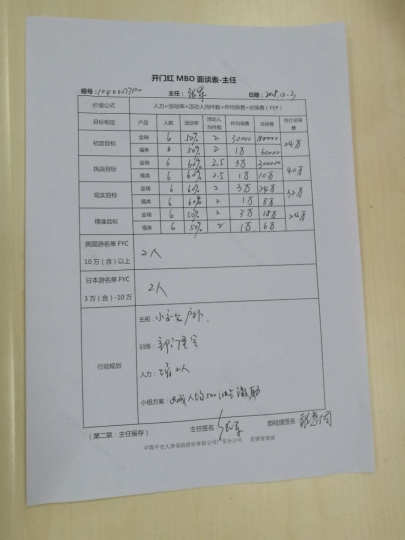 开门红 MBO 面谈表-主任
组号: 主任: 日期: 2018.12.3
价值公式 人力×活动率×活动人均件数×件均保费=总保费(FYP)
目标制定 产品 人数 活动率 活动人均件数 件均保费 总保费 合计总保费
初定目标 金瑞 6 50% 2 30000 180000 24万
福满 6 50% 2 1万 60000
挑战目标 金瑞 6 60% 2.5 3万 300000 40万
福满 6 60% 2.5 1万 10万
临实目标 金瑞 6 60% 2 3万 24万 32万
福满 6 60% 2 1万 8万
精准目标 金瑞 6 50% 2 3万 18万 24万
福满 6 50% 2 1万 6万
英国游名单 FYC 10 万(含)以上 2人
日本游名单 FYC 3 万(含)-10万 2人
行动规划
主拓:
训练:
人力: 2人
小组方案:
(第二联:主任留存) 主任签名: 部经理签名:
中国平安人寿保险股份有限公司广东分公司